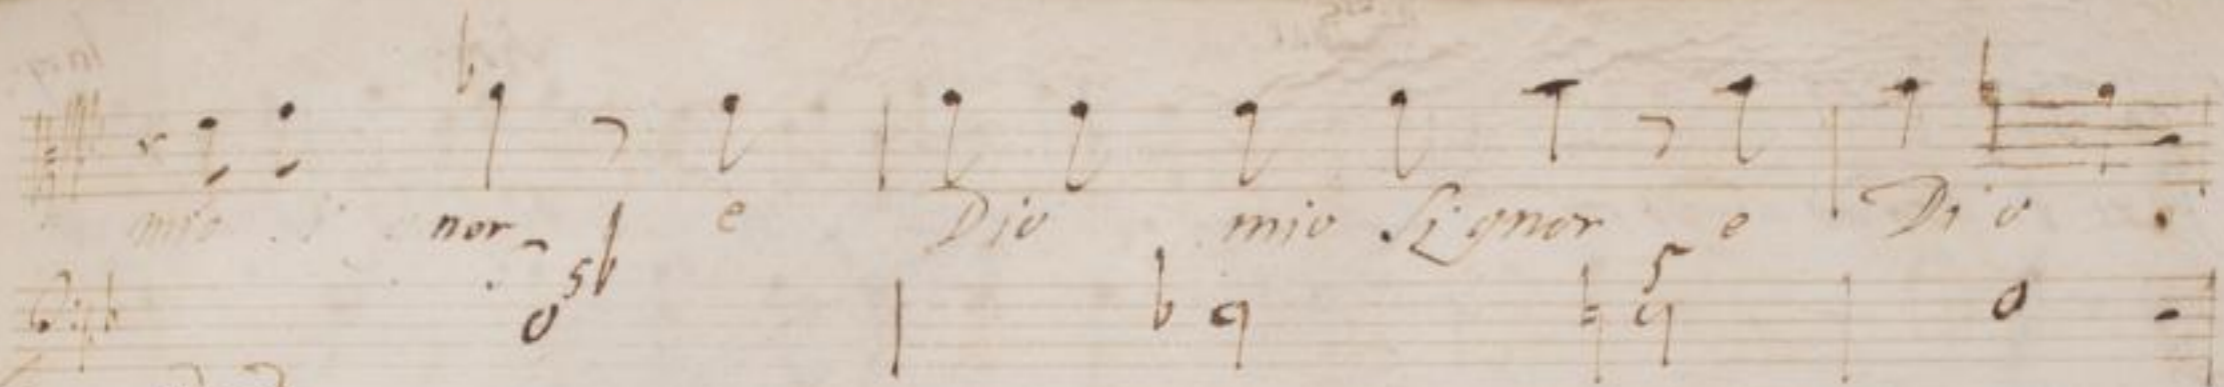 mio nor e Dio mio Signor e Dio
5b
5